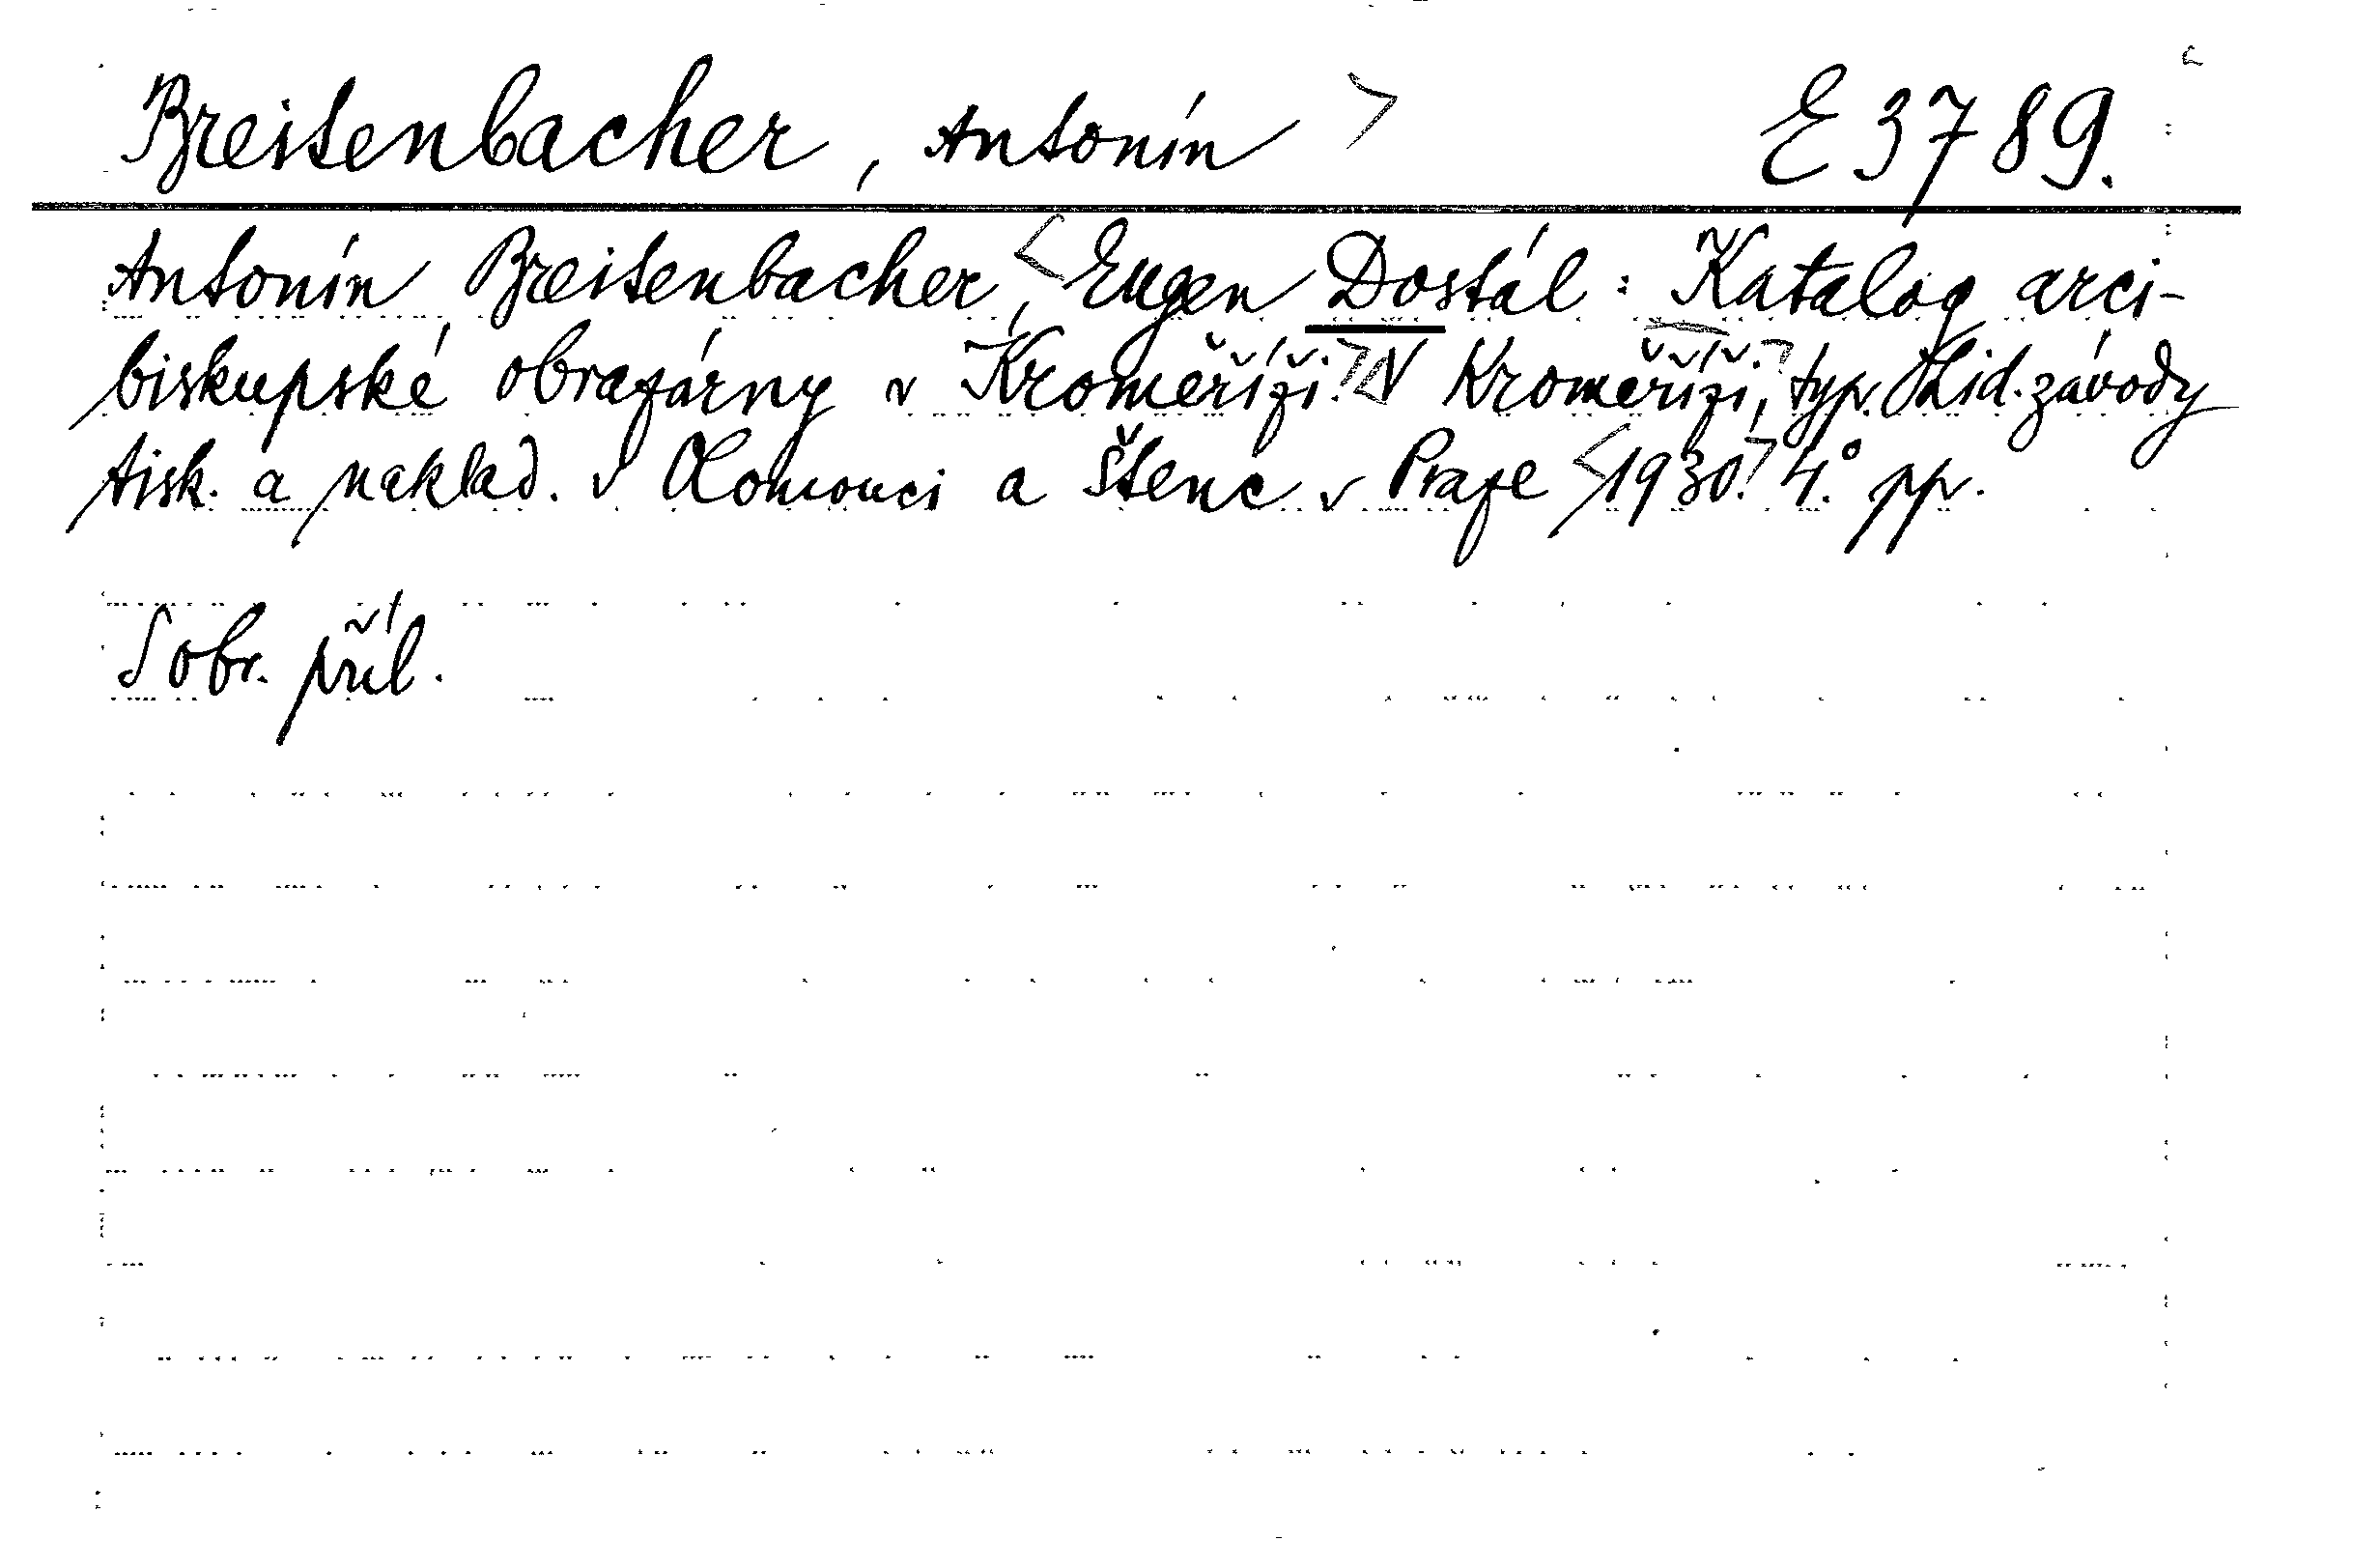 Breitenbacher, Antonín > E 3789.
Antonín Breitenbacher, <Eugen Dostál: Katalog arci-
biskupské obrazárny v Kroměříži.> V Kroměříži, typ. Lid. závody
tisk. a naklad. v Olomouci a Štenc v Praze <1930.> 4.° pp.
S obr. příl.